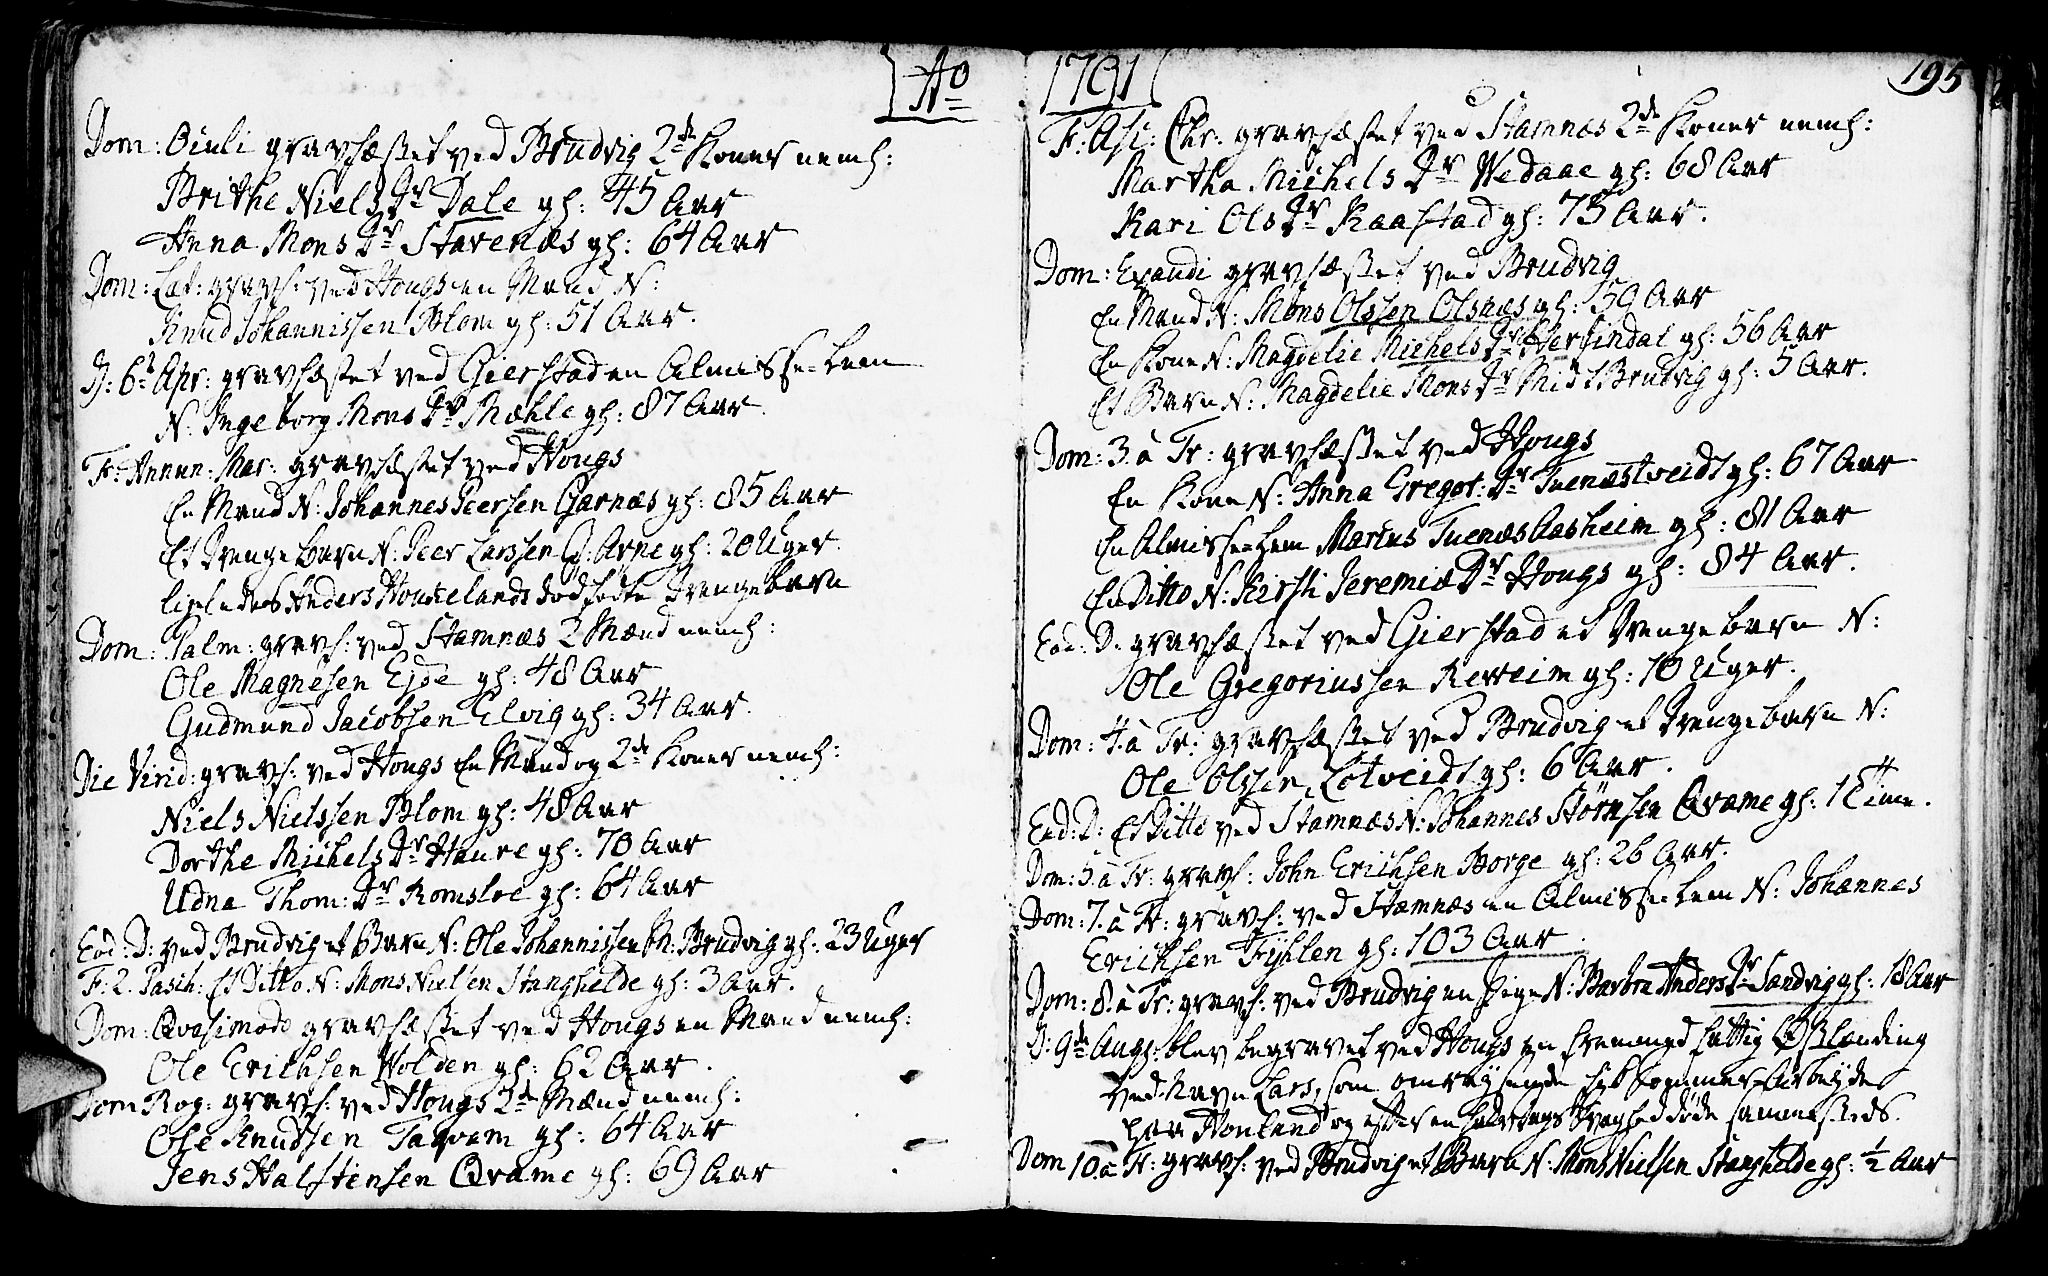 Ao 1791
195
Dom: Oculi gravfæstet ved Brudvig 2de Koner neml:
Brithe Niels Dr Dale gl: 45 Aar
Anna Mons Dr Stavenæs gl: 64 Aar
Dom: Læt: gravf: ved Hougs en Mand N:
Knud Johannissen Blom gl: 51 Aar.
D: 6t Apr: gravfæstet ved Gierstad en Almisse-Lem
N: Ingeborg Mons Dr Mæhle gl: 87 Aar.
F: Annun: Mar: gravfæstet ved Hougs
En Mand N: Johannes Peersen Garnæs gl: 85 Aar
Et Drengebarn N: Peer Larssen Ø: Arne gl: 20 Uger.
ligeledes Anders Houkelands dødfødte Drengebarn
Dom: Palm: gravf: ved Stamnæs 2 Mænd neml:
Ole Magnesen Ejde gl: 48 Aar
Gudmund Jacobsen Elvig gl: 34 Aar.
Die Virid: gravf: ved Hougs En Mand og 2de Koner neml:
Niels Nielssen Blom gl: 48 Aar
Dorthe Michels Dr Haure gl: 70 Aar
Udna Thom: Dr Romsloe gl: 64 Aar
Eod: D: ved Brudvig et Barn N: Ole Johannissen M: Brudvig gl: 23 Uger
F: 2. Pasch: Et Ditto N: Mons Nielsen Stanghelde gl: 3 Aar.
Dom: Qvasimodo gravfæstet ved Hougs en Mand neml:
Ole Erichsen Wolden gl: 62 Aar.
Dom Rog: gravf: ved Hougs 2de Mænd neml:
Ole Knudsen Taqvam gl: 64 Aar
Jens Halstensen Qvame gl: 69 Aar
F: Asc: Chr: gravfæstet ved Stamnæs 2de Koner neml:
Martha Michels Dr Wedaae gl: 68 Aar
Kari Ols Dr Kaastad gl: 75 Aar.
Dom: Exaudi gravfæstet ved Brudvig
En Mand N: Mons Olssen Olsnæs gl: 59 Aar
En Kone N: Magdelie Michels Dr Herfindal gl: 56 Aar
Et Barn N: Magdelie Mons Dr Midt Brudvig gl: 5 Aar.
Dom: 3. à Tr: gravfæstet ved Hougs
En Kone N: Anna Gregor: Dr Tuenæstveidt gl: 67 Aar
En Almisse-Lem Marius Tuenæs Aasheim gl: 81 Aar
En Ditto N: Kirsti Jeremiæ Dr Hougs gl: 84 Aar.
Eod: D: gravfæstet ved Gierstad et Drengebarn N:
Ole Gregoriussen Revheim gl: 10 Uger.
Dom: 4. à Tr: gravfæstet ved Brudvig et Drengebarn N:
Ole Olssen Lotveidt gl: 6 Aar.
Eod: D: Et Ditto ved Stamnæs N: Johannes Størksen Qvame gl: 1 Time.
Dom: 5. à Tr: gravf: John Erichsen Borge gl: 26 Aar.
Dom: 7. à Tr: gravf: ved Stamnæs en Almisse-Lem N: Johannes
Erichsen Fyhlen gl: 103 Aar.
Dom: 8. à Tr: gravf: ved Brudvig en Pige N: Barbra Anders Dr Sandvig gl: 18 Aar
D: 9de Aug: blev begravet ved Hougs en fremmed fattig Østlænding
ved Navn Lars, som omreysende Sommer Arbeyde
paa Houland og efter en Svaghed døde sammesteds.
Dom 10. à Tr: gravf: ved Brudvig et Barn N: Mons Nielsen Stanghelde gl: ½ Aar